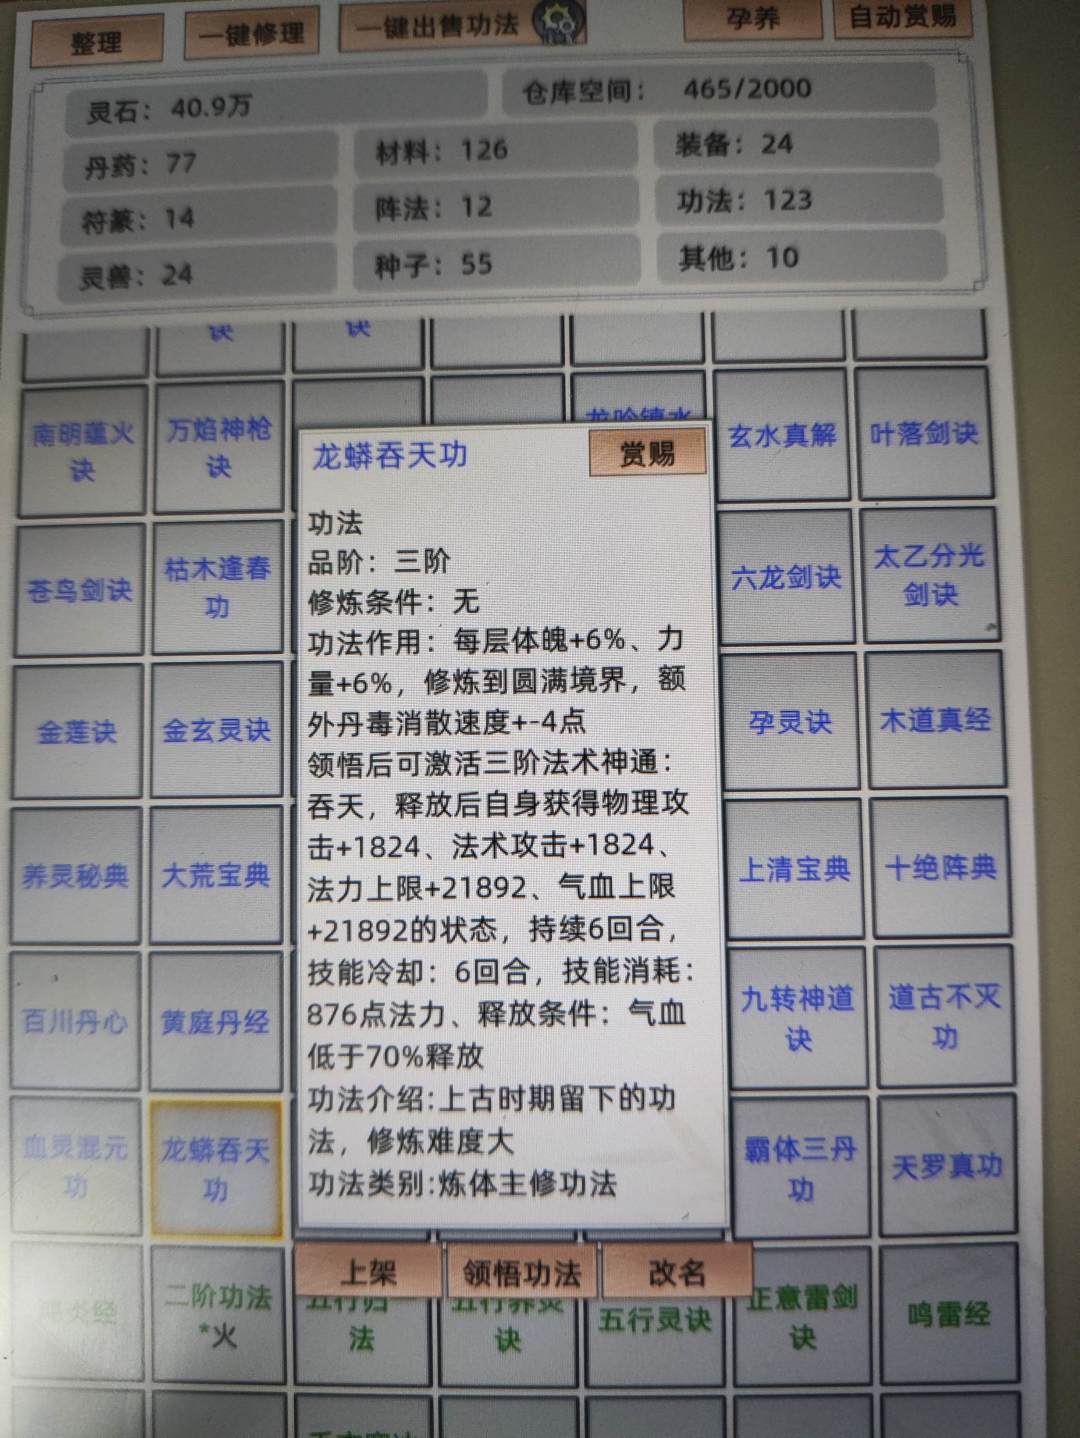 整理
一键修理
一键出售功法
孕养
自动赏赐
灵石：40.9万
仓库空间： 465/2000
丹药：77
材料：126
装备：24
符篆：14
阵法：12
功法：123
灵兽：24
种子：55
其他：10
诀
诀
南明蕴火
诀
万焰神枪
诀
玄水真解
叶落剑诀
苍鸟剑诀
枯木逢春
功
六龙剑诀
太乙分光
剑诀
金莲诀
金玄灵诀
孕灵诀
木道真经
养灵秘典
大荒宝典
上清宝典
十绝阵典
百川丹心
黄庭丹经
九转神道
诀
道古不灭
功
血灵混元
功
龙蟒吞天
功
霸体三丹
功
天罗真功
龙蟒吞天功
赏赐
功法
品阶：三阶
修炼条件：无
功法作用：每层体魄+6%、力
量+6%，修炼到圆满境界，额
外丹毒消散速度+-4点
领悟后可激活三阶法术神通：
吞天，释放后自身获得物理攻
击+1824、法术攻击+1824、
法力上限+21892、气血上限
+21892的状态，持续6回合，
技能冷却：6回合，技能消耗：
876点法力、释放条件：气血
低于70%释放
功法介绍:上古时期留下的功
法，修炼难度大
功法类别:炼体主修功法
上架
领悟功法
改名
二阶功法
*火
法
诀
五行灵诀
正意雷剑
诀
鸣雷经